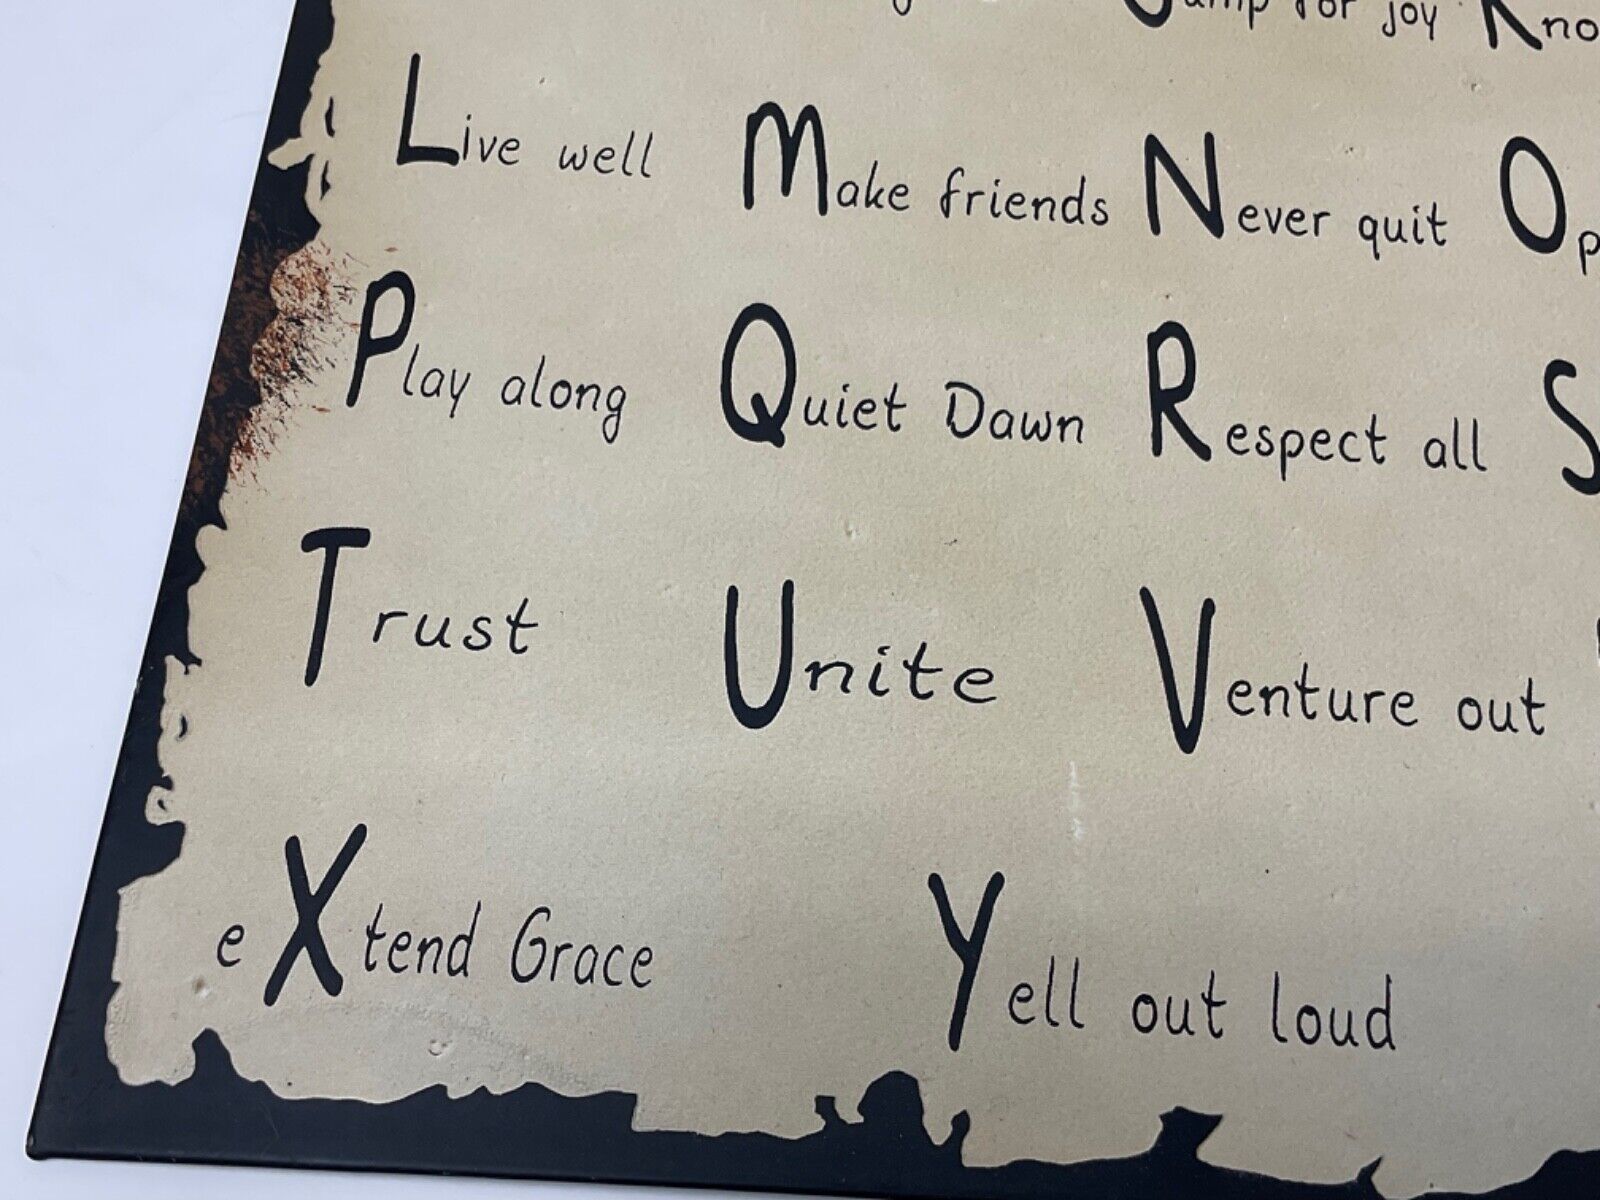 Jump for joy
Live well Make friends Never quit
Play along Quiet Dawn Respect all
Trust Unite Venture out
eXtend Grace Yell out loud